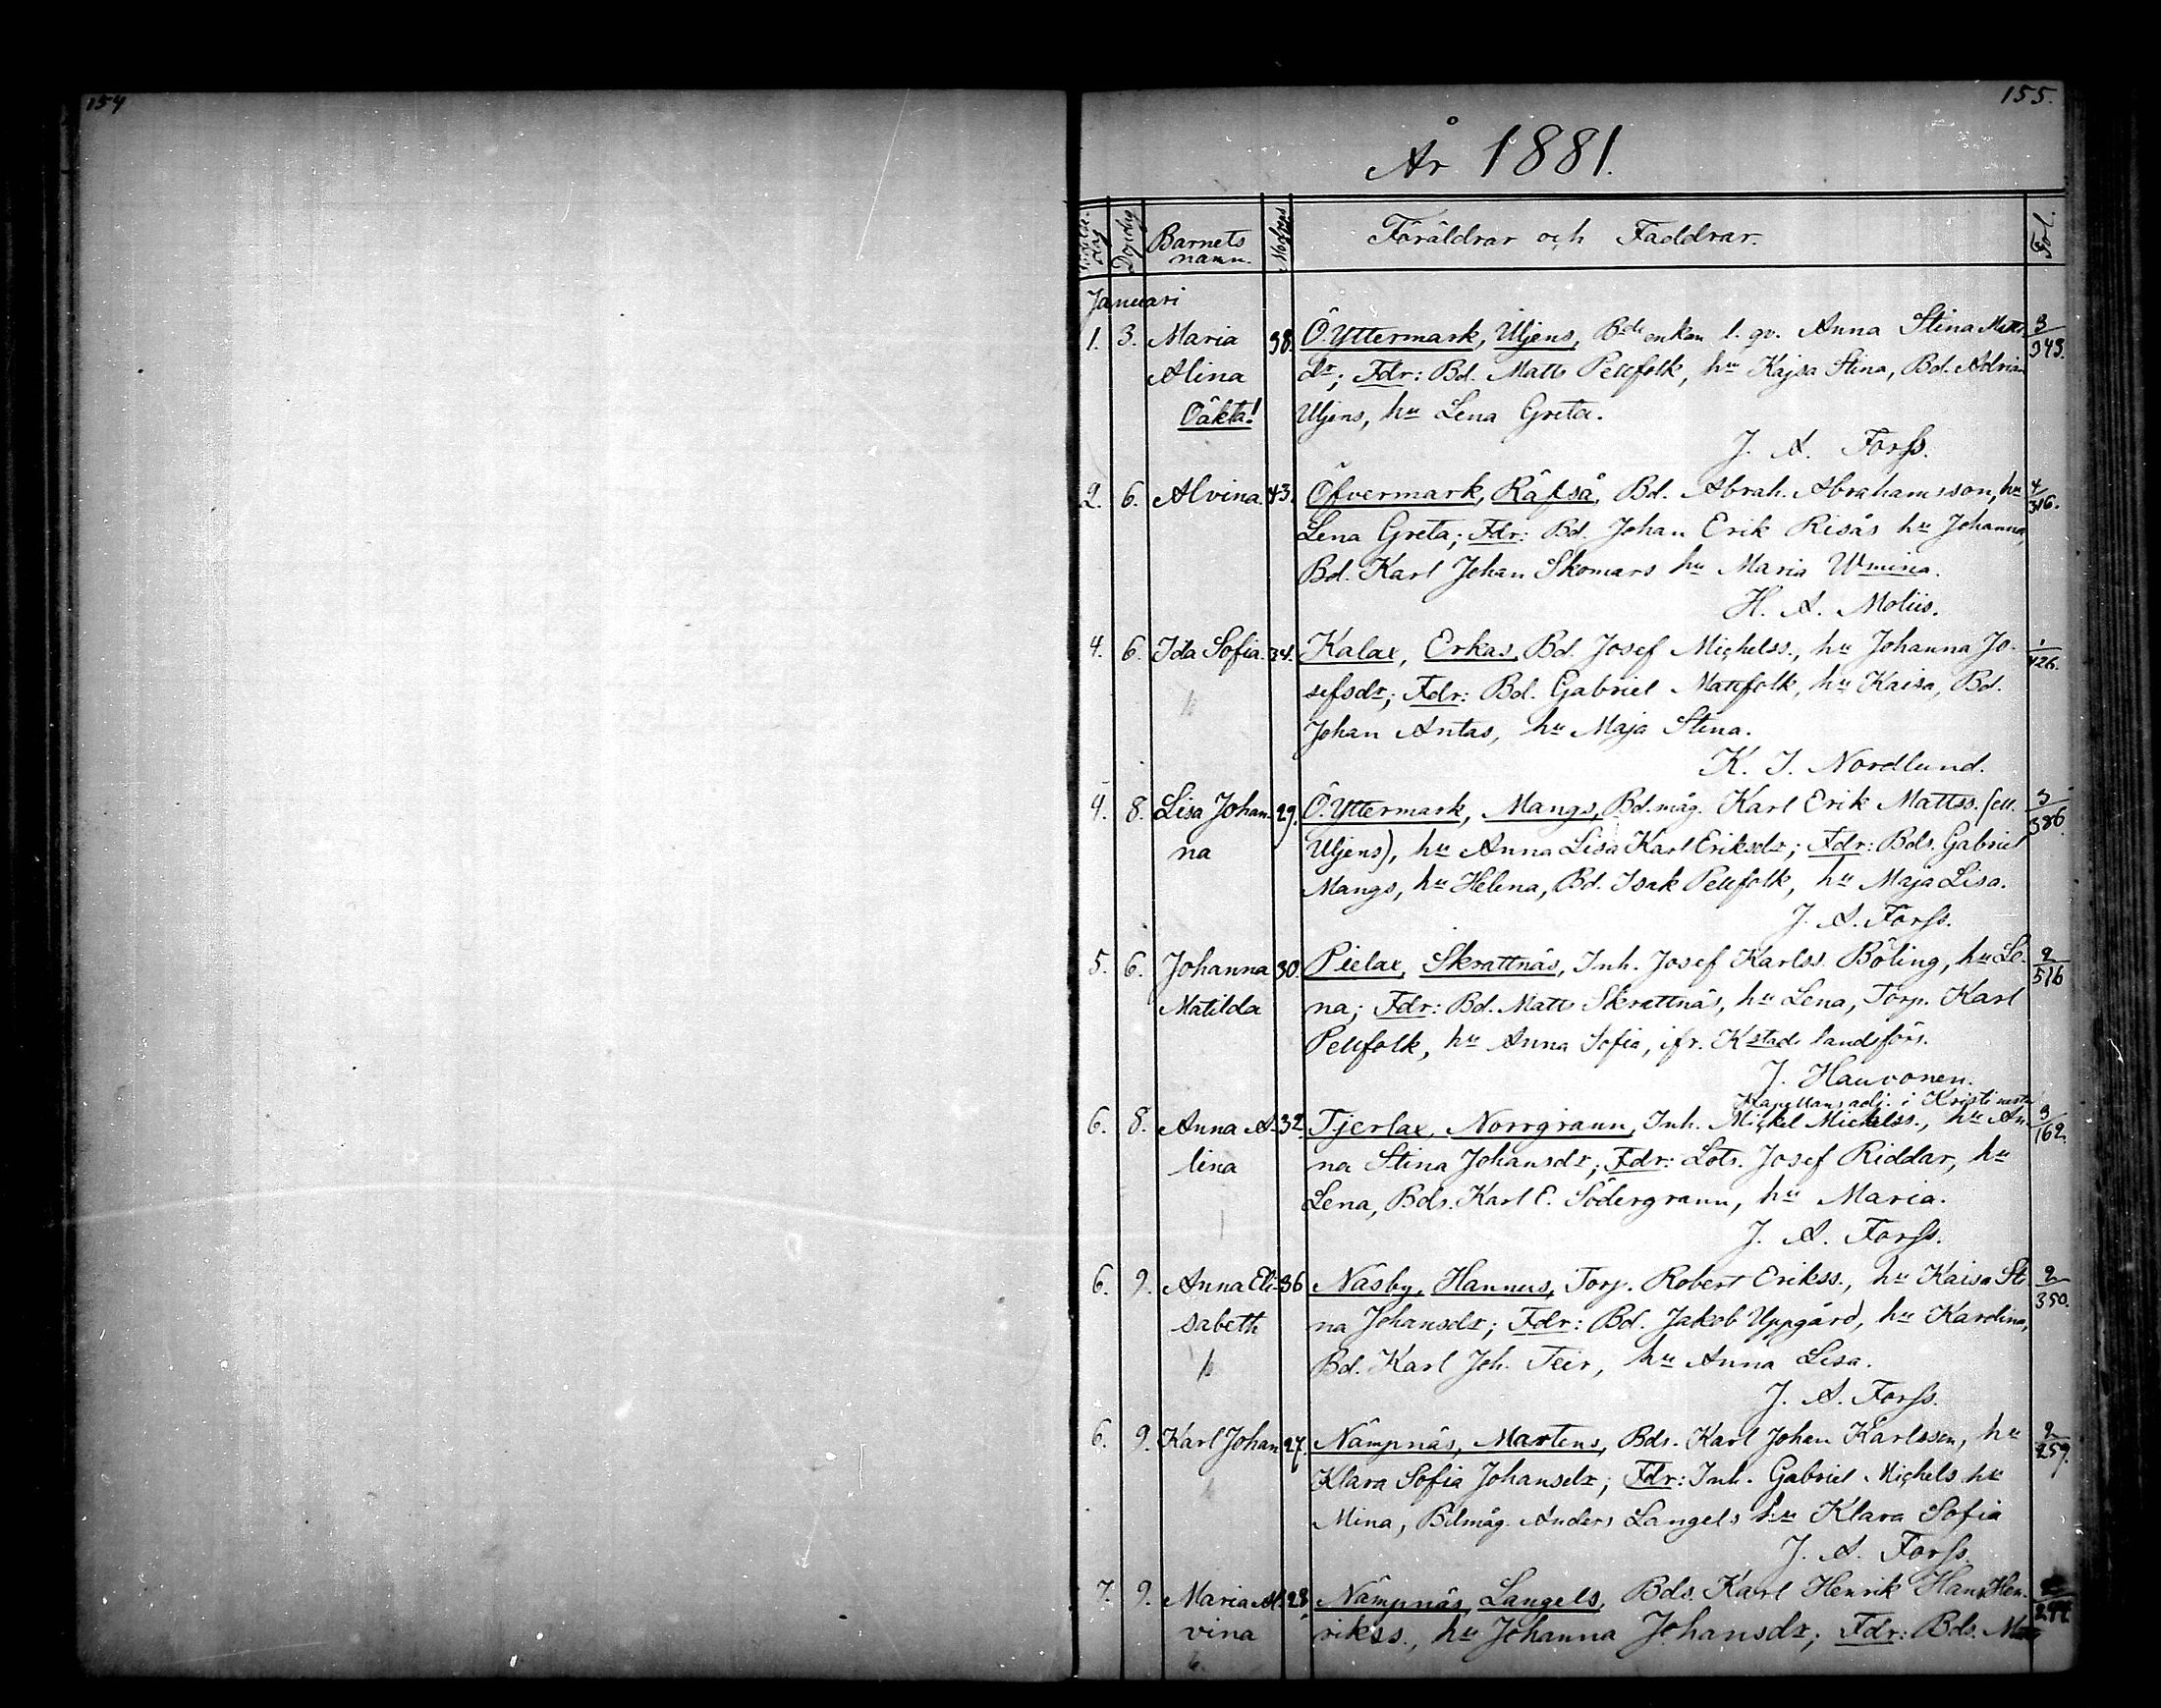 154
155.
År 1881.
Födelse-dag Dopdag Barnets namn. Moders Föräldrar och Faddrar. Fol.
Januari
1. 3. Maria 38. Ö.Yttermark, Uljens, Bds enkan l. qv. Anna Stina Matts 3/343.
Alina dr; Fdr: Bd. Matts Pellfolk, hu Kajsa Stina, Bd. Adrian
Oäkta! Uljens, hu Lena Greta.
J. A. Forss.
2. 6. Alvina. 43. Öfvermark, Räfså, Bd. Abrah. Abrahamsson, hu 4/316.
Lena Greta; Fdr: Bd. Johan Erik Risås hu Johanna,
Bd. Karl Johan Skomars hu Maria Wmina.
H. A. Moliis.
4. 6. Ida Sofia. 34. Kalax, Erkas, Bd. Josef Michelss., hu Johanna Jo- 1/426.
sefsdr; Fdr: Bd. Gabriel Mattfolk, hu Kaisa, Bd.
Johan Antas, hu Maja Stina.
K. J. Nordlund.
4. 8. Lisa Johan- 29. Ö.Yttermark, Mangs, Bd.måg. Karl Erik Mattss. (ell. 3/386.
na Uljens), hu Anna Lisa Karl Eriksdr; Fdr: Bds. Gabriel
Mangs, hu Helena, Bd. Isak Pellfolk, hu Maja Lisa.
J. A. Forss.
5. 6. Johanna 30. Pielax, Skrattnäs, Inh. Josef Karlss. Böling, hu Le- 2/516
Matilda na; Fdr: Bd. Matts Skrattnäs, hu Lena, Torp. Karl
Pellfolk, hu Anna Sofia, ifr. Kstads landsförs.
J. Hauvonen.
Kapellans adj. i Kristinestad
6. 8. Anna A- 32. Tjerlax, Norrgrann, Inh. Mickel Mickelss., hu An- 3/162.
lina na Stina Johansdr; Fdr: Lots. Josef Riddar, hu
Lena, Bds. Karl E. Södergrann, hu Maria.
J. A. Forss.
6. 9. Anna Eli- 36 Näsby, Hannus, Torp. Robert Erikss., hu Kaisa Sti 2/350.
sabeth na Johansdr; Fdr: Bd. Jakob Uppgård, hu Karolina,
Bd. Karl Joh. Teir, hu Anna Lisa.
J. A. Forss.
6. 9. Karl Johan 27. Nämpnäs, Martens, Bds. Karl Johan Karlsson, hu 2/259.
Klara Sofia Johansdr; Fdr: Inh. Gabriel Michels hu
Mina, Bdmåg. Anders Langels hu Klara Sofia
J. A. Forss.
7. 9. Maria Al- 28. Nämpnäs, Langels, Bds. Karl Henrik Hans Hen-
vina rikss., hu Johanna Johansdr; Fdr: Bds.